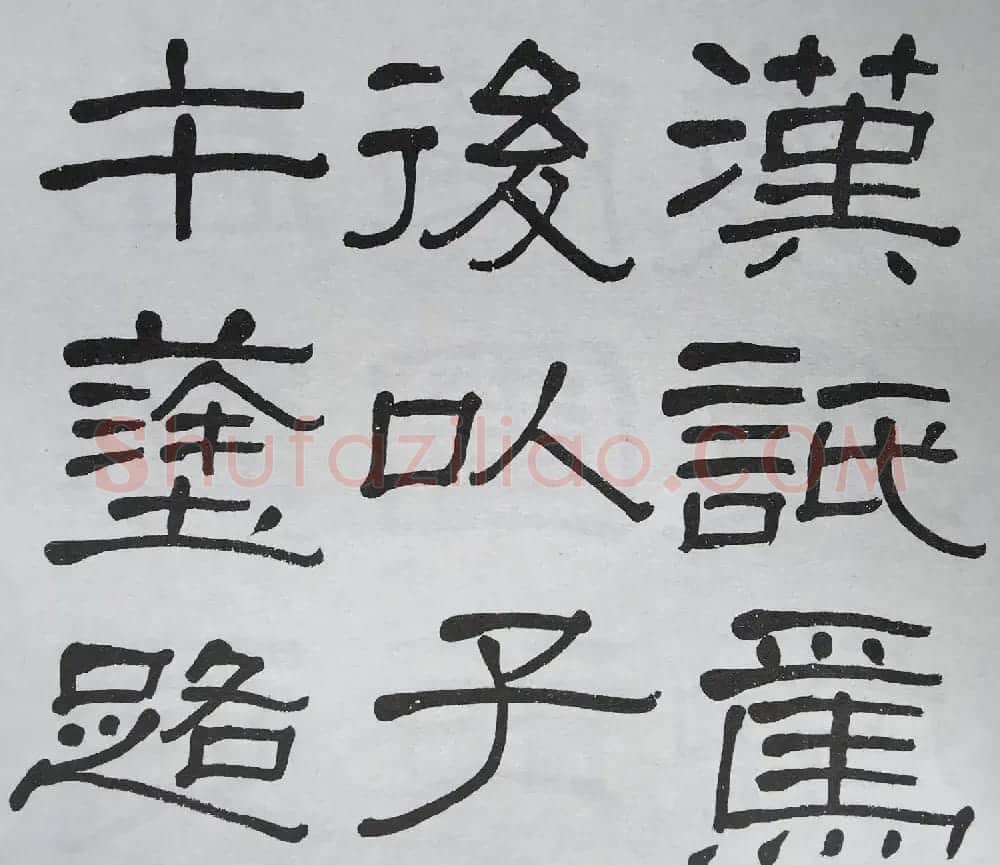 漢詆焉
後以子
午塗路
Shufaziliao.COM